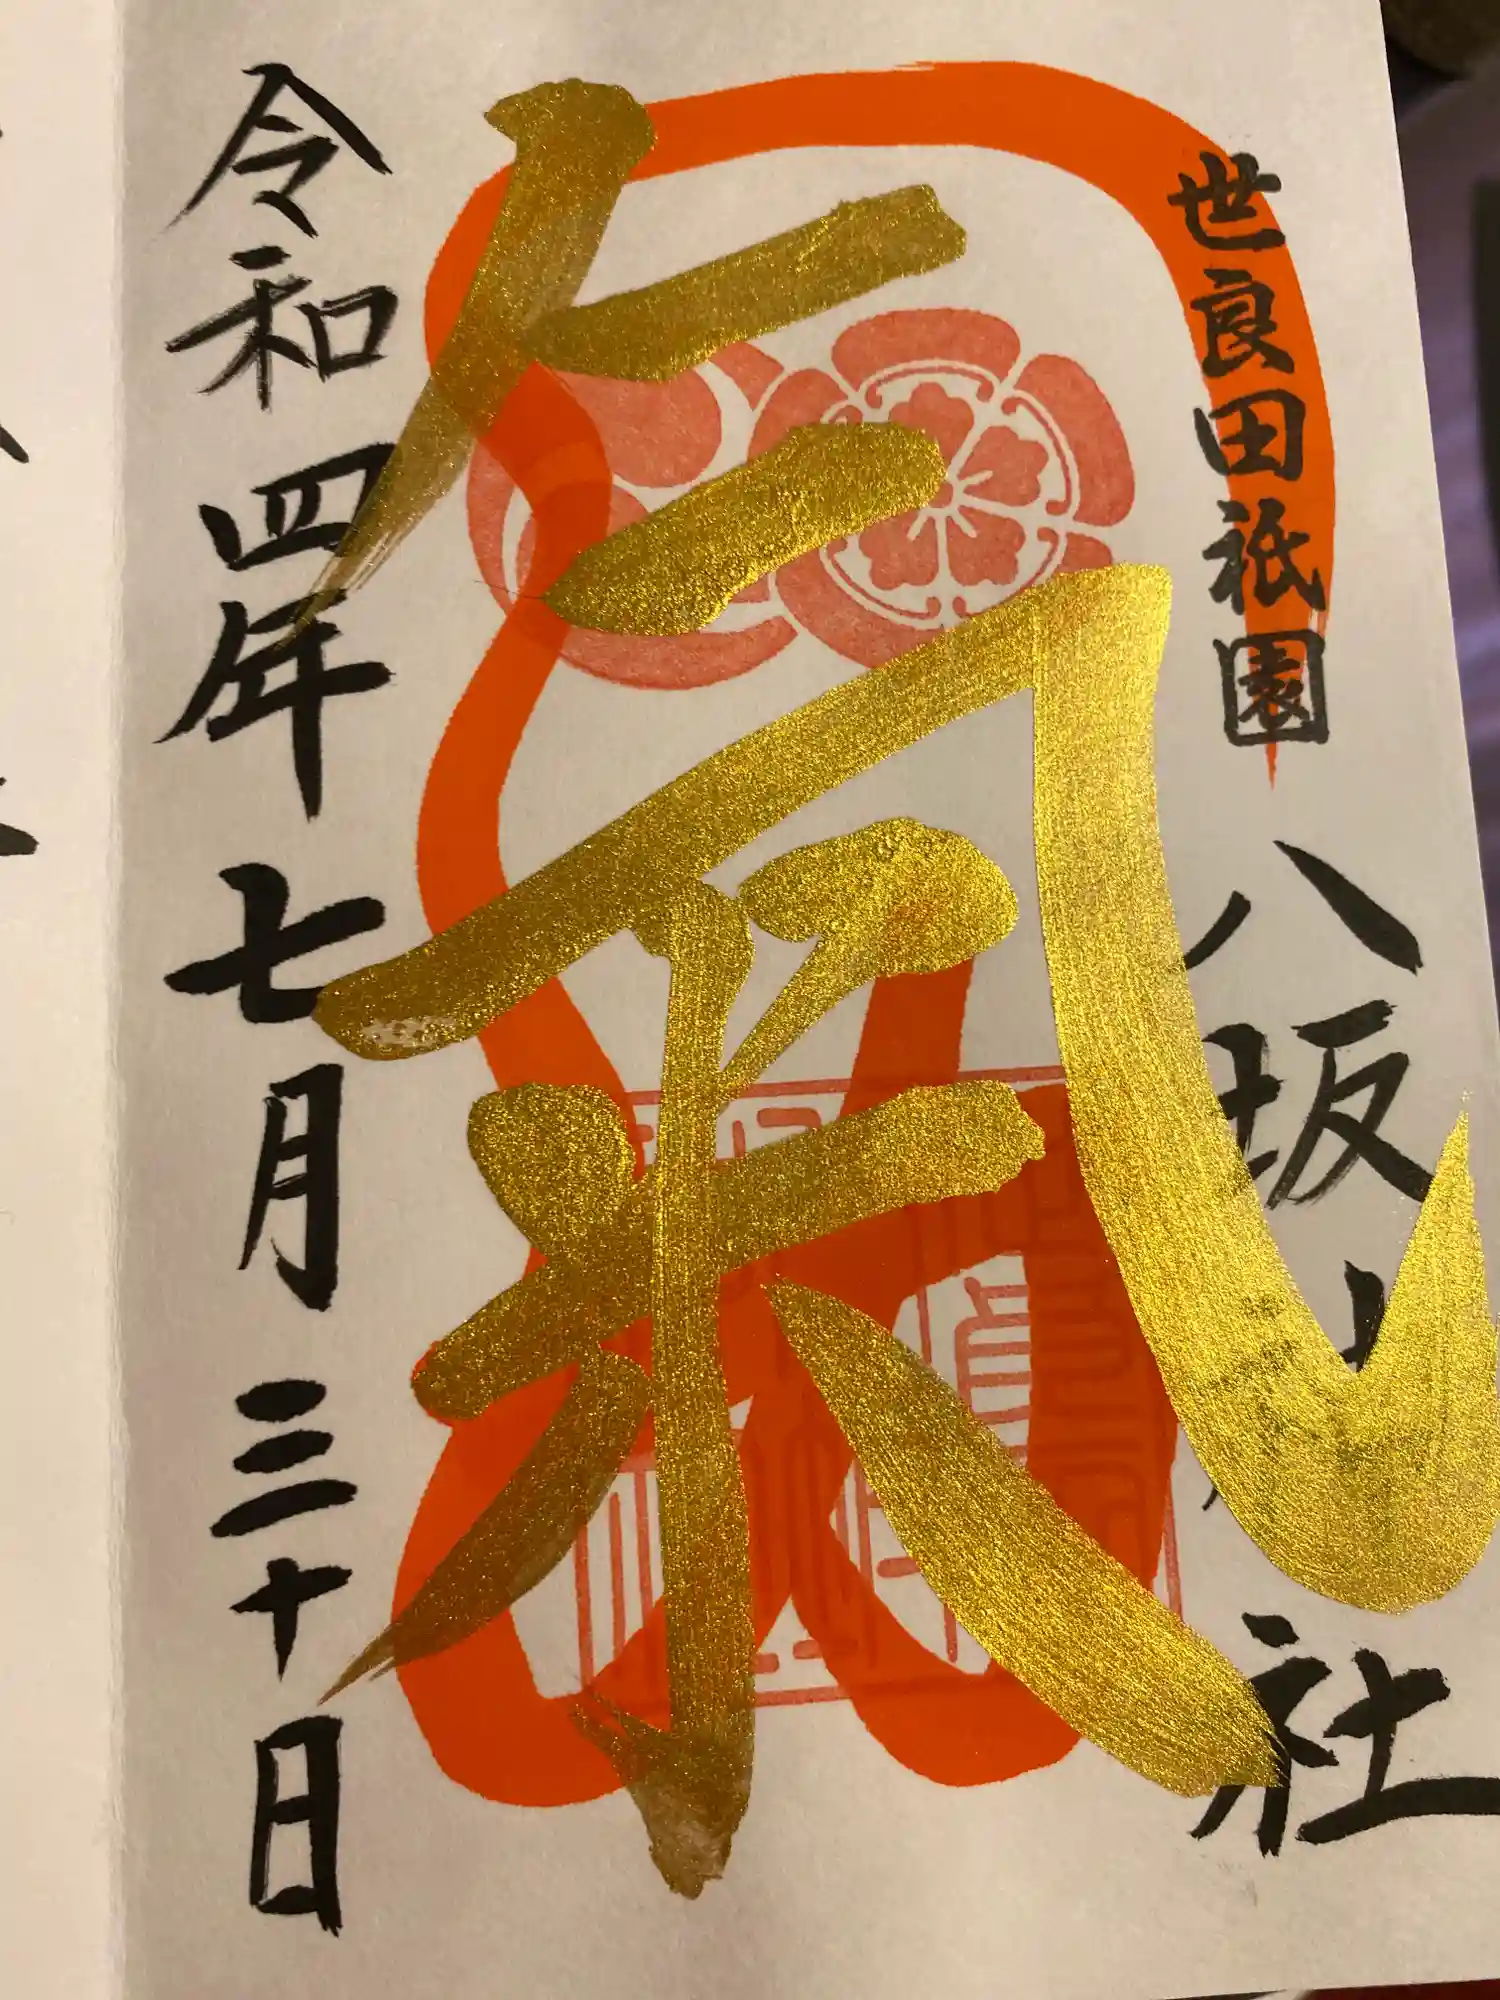 世良田祇園
八坂神社
氣
令和四年七月三十日